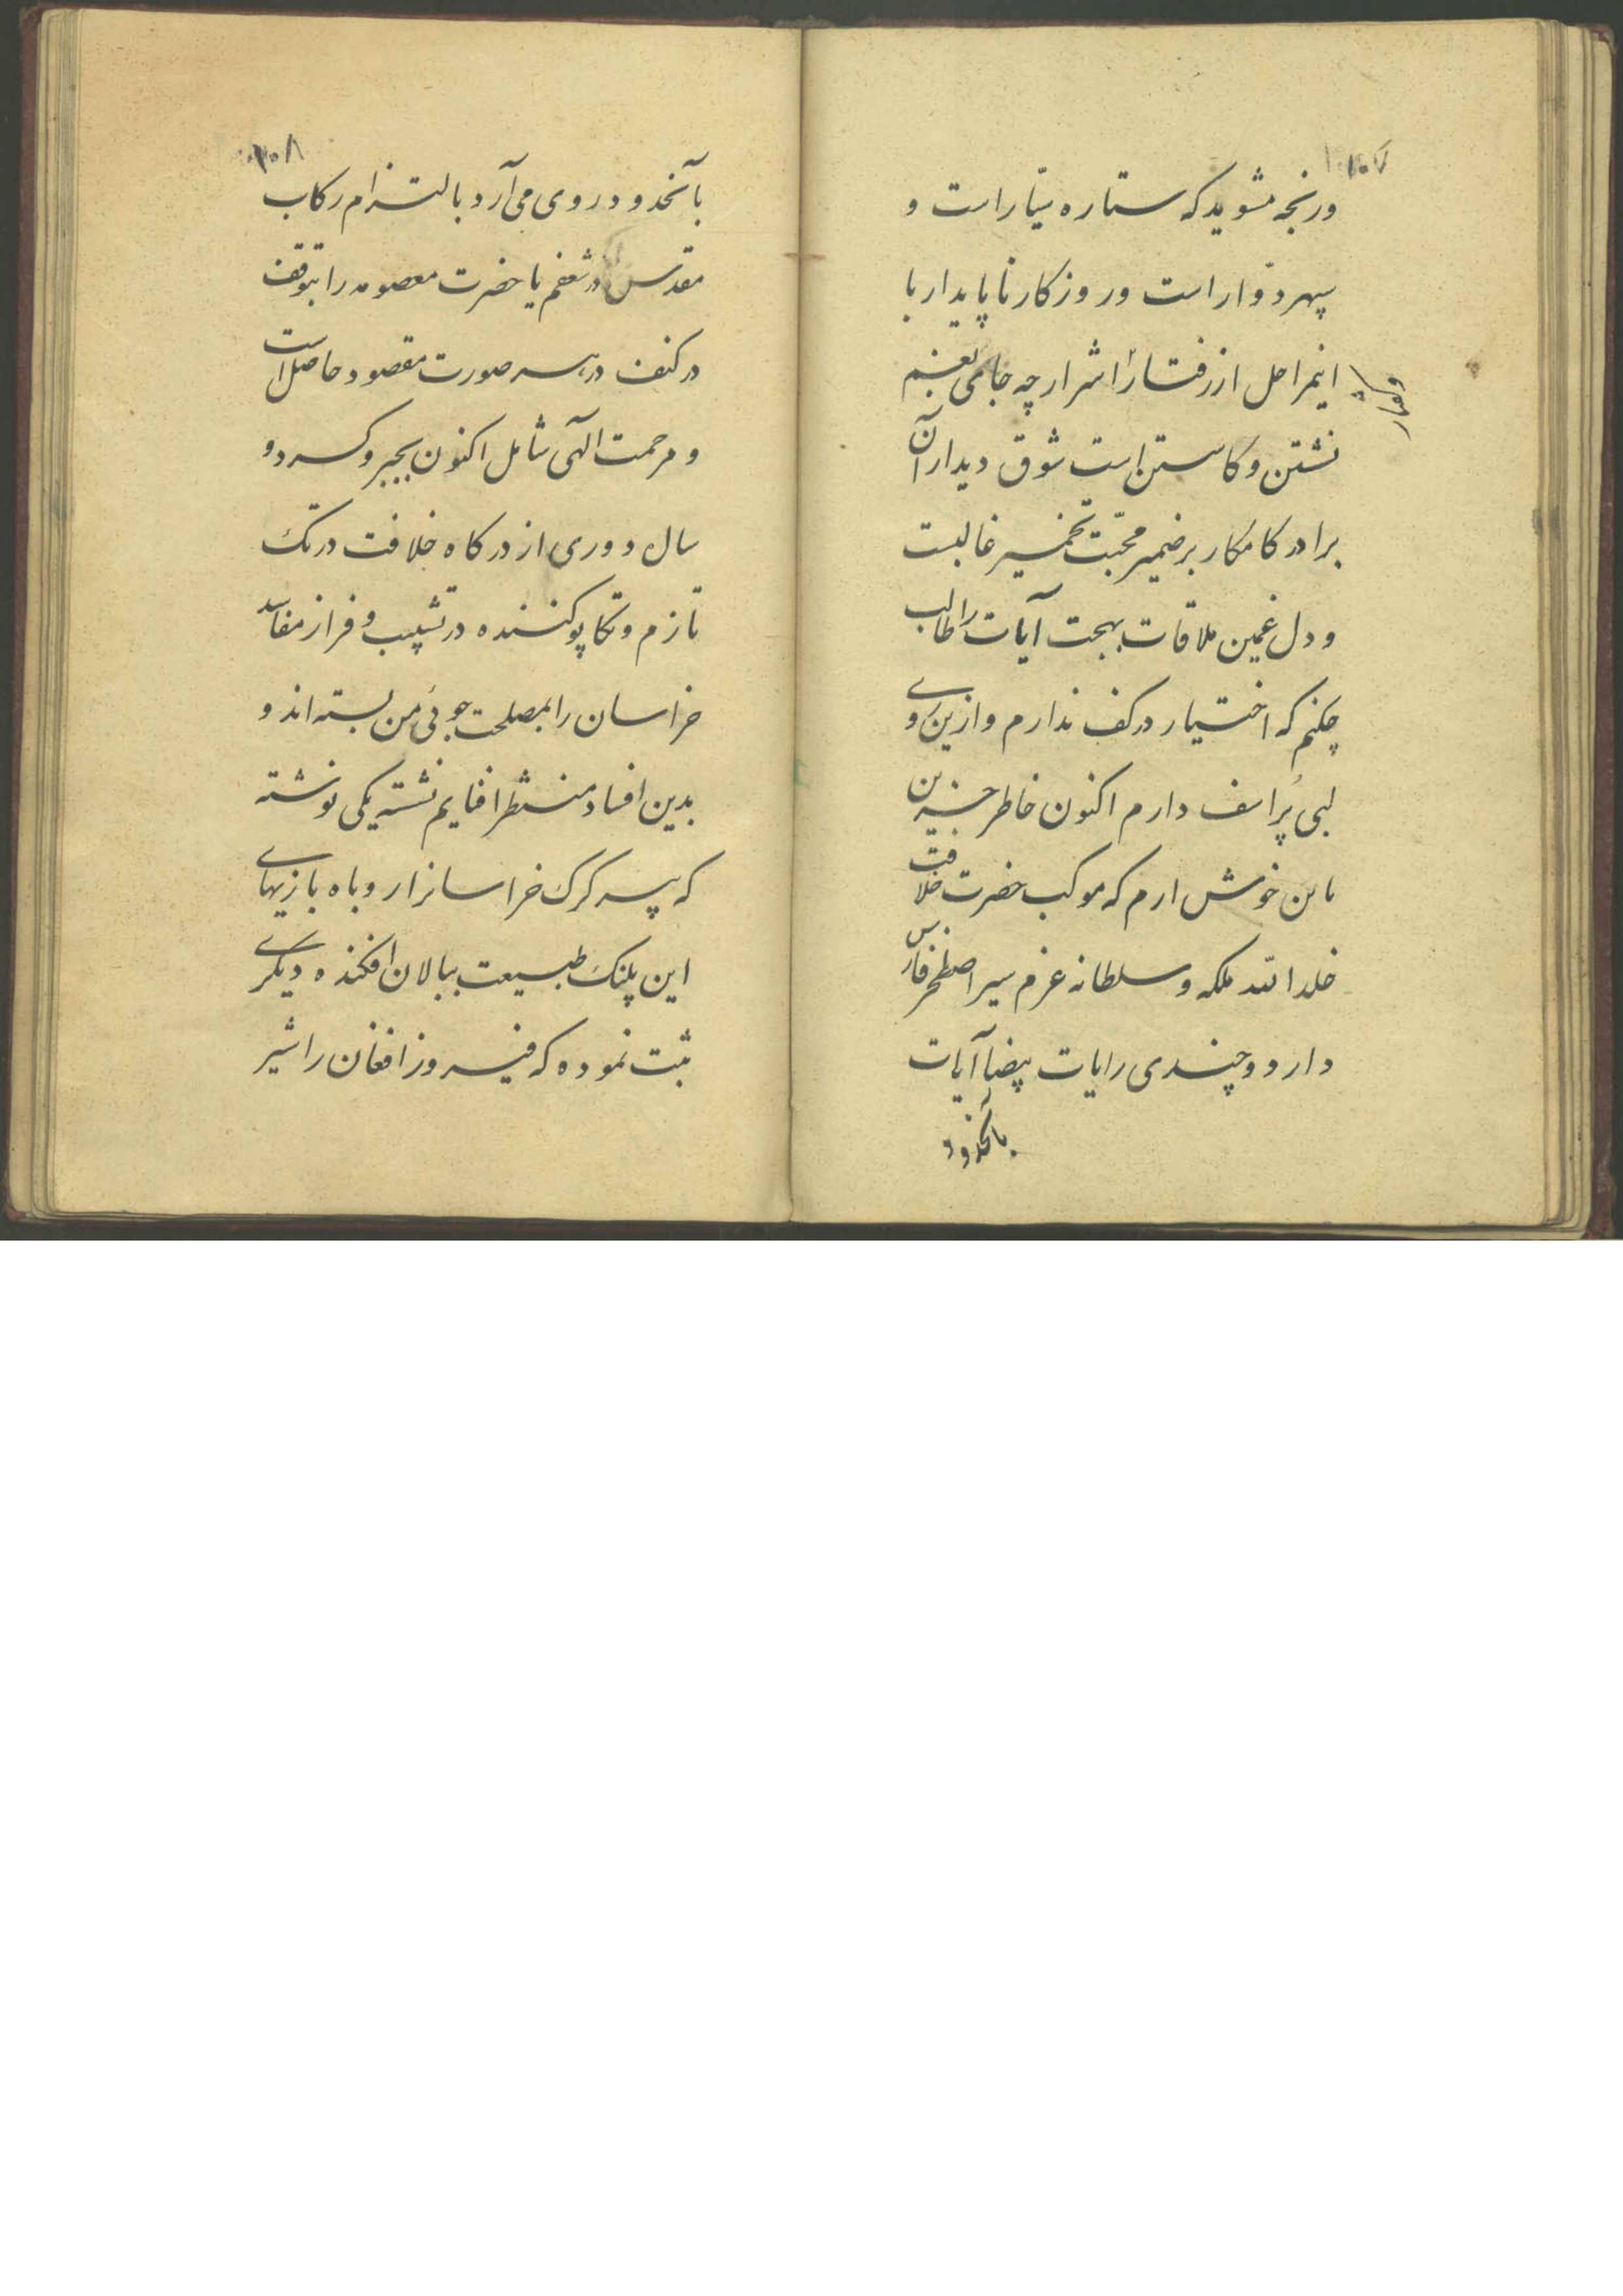 ۱۰۷
ورنجه مشوید که ستاره سیّار است و
سپهر دوّار است وروزکار ناپایدار با
اینمراحل از رفتار اشرار چه جای بغم
نشتن و کاستن است شوق دیدار آن
برادر کامکار بر ضمیر محبّت تخمیر غالبست
و دل غمین ملاقات بهجت آیات را طالب
چکنم که اختیار در کف ندارم وازین روی
لبی پُر اسف دارم اکنون خاطر حزین
باین خوش دارم که موکب حضرت خلافت
خلد الله ملکه و سلطانه عزم سیر اصطخر فارس
دارد و چندی رایات بیضا آیات
بآنحدود
۱۰۸
بآنحدود روی می‌آرد بالتزام رکاب
مقدس در شعفم یا حضرت معصومه را بتوقف
در کنف در هر صورت مقصود حاصل است
و مرحمت الهی شامل اکنون بجبر و کسر دو
سال دوری از درکاه خلافت در تک
تازم و تکاپو کننده در نشیب و فراز مفاسد
خراسان را بمصلحت جوئی من بسته‌اند و
بدین افساد منتظر افنایم نشسته یکی نوشته
که پسر کرک خراسانرا روباه بازیهای
این پلنک طبیعت ببالان افکنده دیکری
ثبت نموده که فیروز افغان را شیر